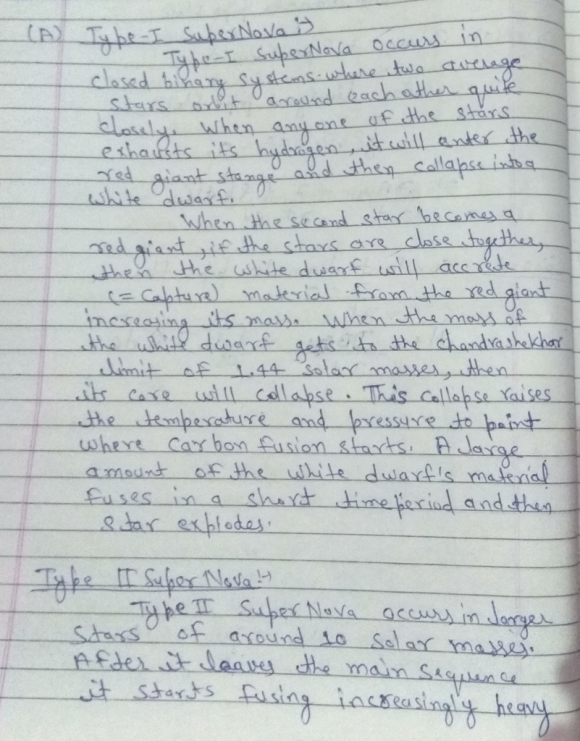 (A) Type-I SuperNova :→
Type-I SuperNova occurs in
closed binary systems where two average
stars orbit around each other quite
closely. When any one of the stars
exhausts its hydrogen, it will enter the
red giant stange and then collapse into a
white dwarf.
When the second star becomes a
red giant, if the stars are close together,
then the white dwarf will accrete
(= Capture) material from the red giant
increasing its mass. When the mass of
the white dwarf gets to the Chandrashekhar
limit of 1.44 solar masses, then
its core will collapse. This collapse raises
the temperature and pressure to point
where Carbon fusion starts. A large
amount of the white dwarf's material
fuses in a short time period and then
Star explodes.
Type II Super Nova :→
Type II SuperNova occurs in larger
Stars of around 10 Solar masses.
After it leaves the main Sequence
it starts fusing increasingly heavy